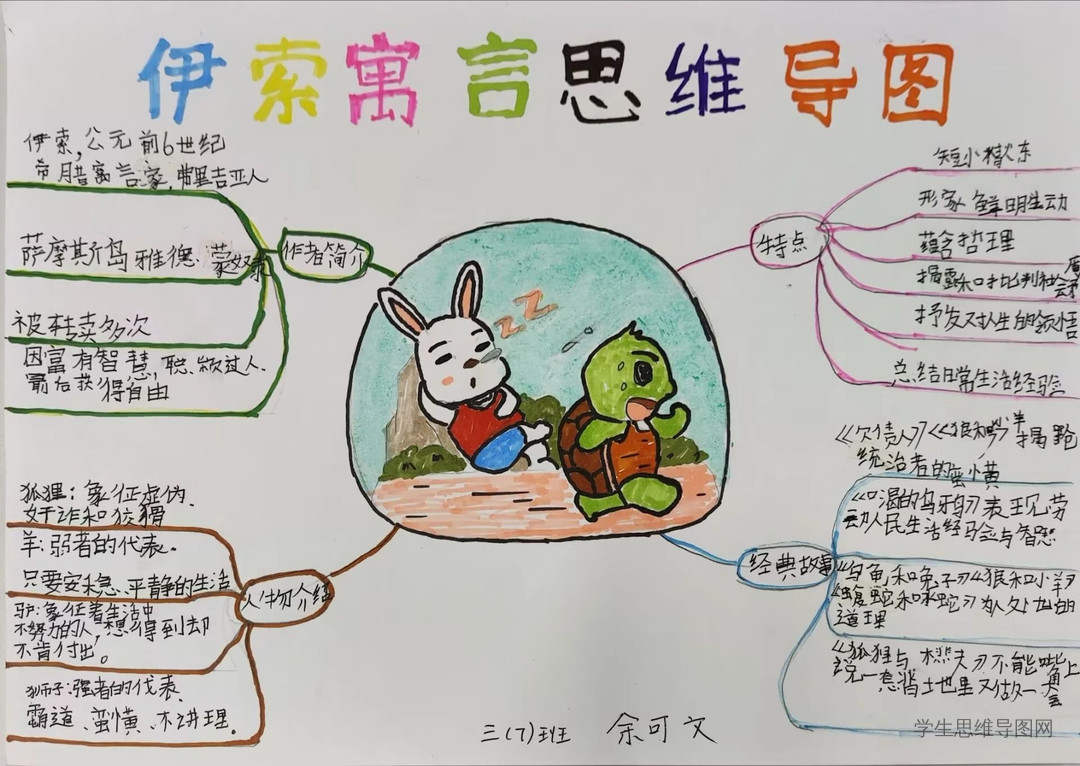 伊索寓言思维导图
伊索,公元前6世纪
希腊寓言家,弗里吉亚人
萨摩斯岛雅德蒙奴隶
被转卖多次
因富有智慧,聪颖过人.
最后获得自由
作者简介
短小精
形象鲜明生动
蕴含哲理
揭露和批判社会
抒发对人生的领悟
总结日常生活经验
特点
狐狸:象征虚伪、
奸诈和狡猾
羊:弱者的代表。
只要安稳、平静的生活
驴:象征着生活中
不努力的人,想得到却
不肯付出。
狮子:强者的代表、
霸道、蛮横、不讲理。
人物介绍
《欠债人》《狼和羊
统治者的蛮横
《口渴的乌鸦》表现劳
动人民生活经验与智慧
《乌龟和兔子》《狼和小羊》
《蝮蛇和水蛇》为人处世的
道理
《狐狸与樵夫》不能嘴上
说一套背地里又做一套
经典故事
zZ
三(7)班 余可文
学生思维导图网